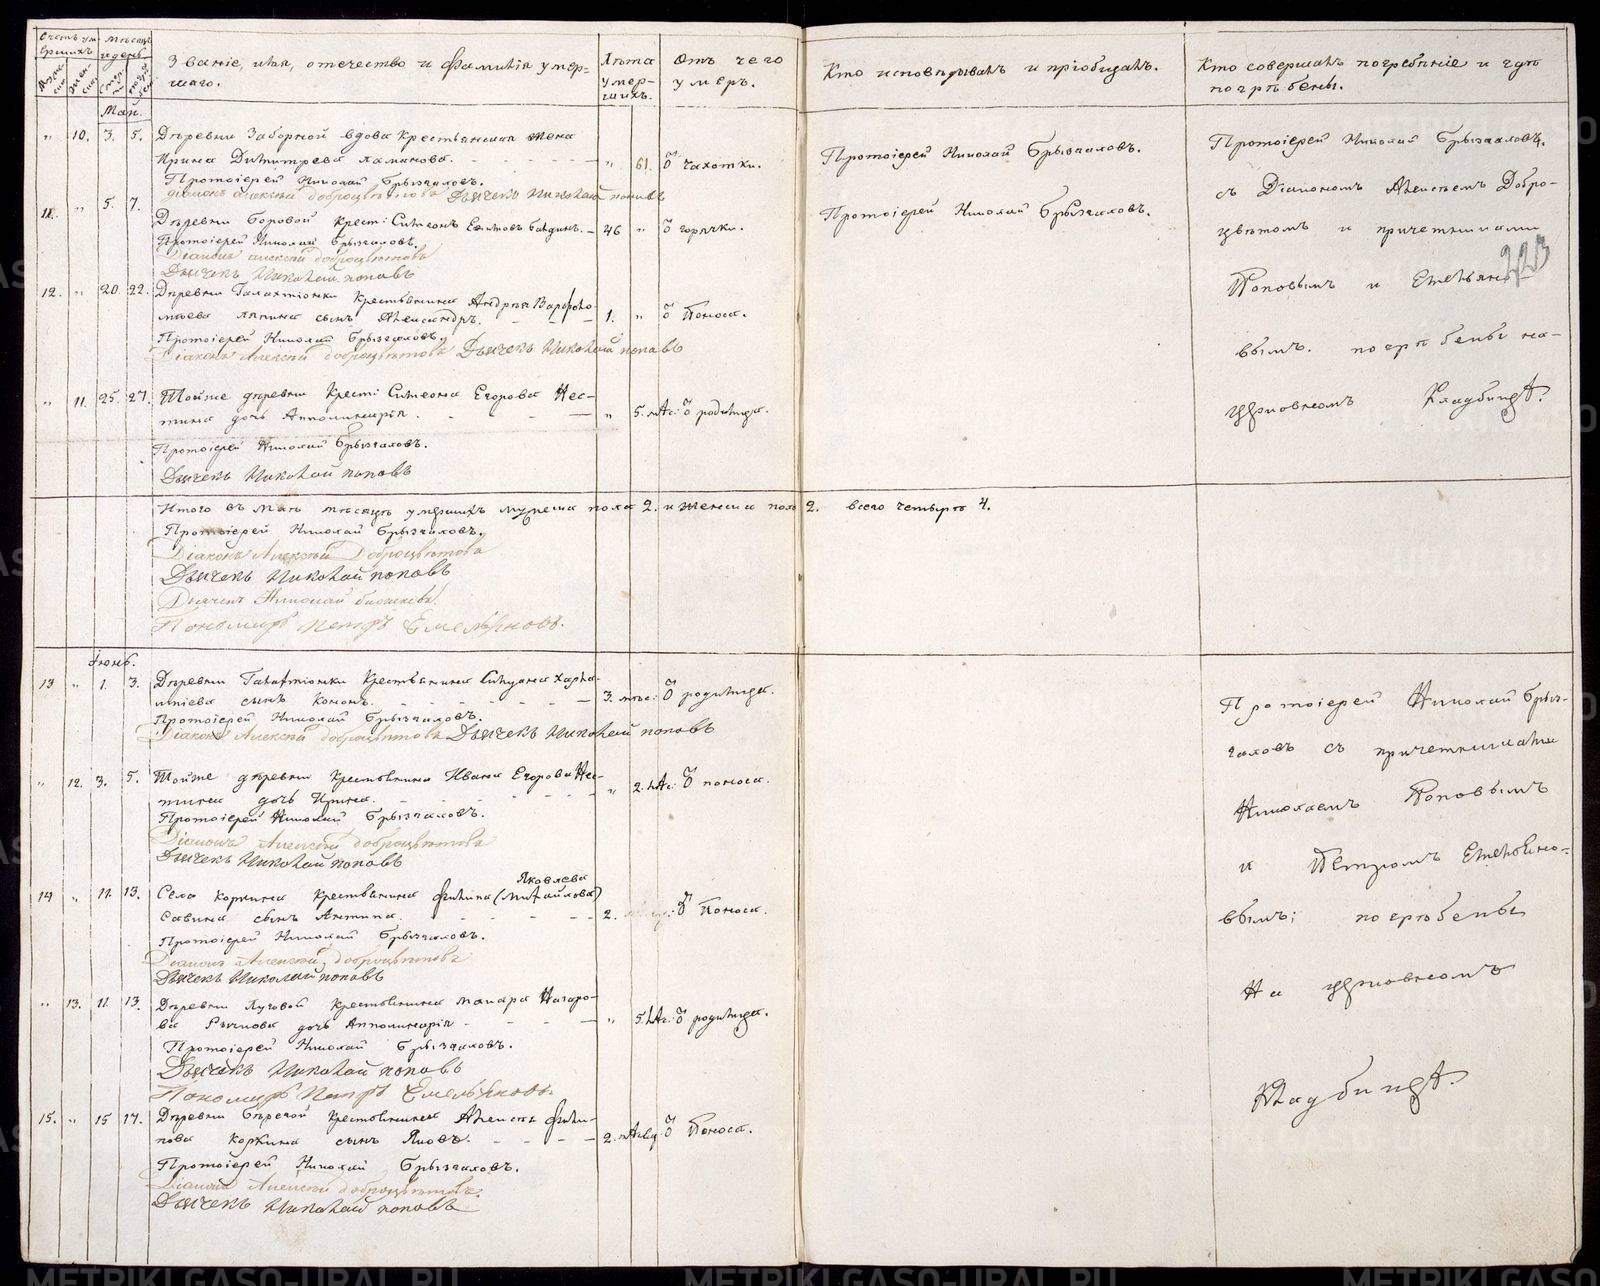 Счетъ ум-
ершихъ
Мѣсяцъ
и день
Званіе, имя, отечество и фамилія умер-
шаго.
Лѣта
умер-
шихъ.
Отъ чего
умеръ.
Кто исповѣдывалъ и пріобщалъ.
Кто совершалъ погребеніе и гдѣ
погрѣбены.
Май.
" 10. 3. 5. Деревни Заборной вдова крестьянская жена
Ирина Димитрева " 61. ѿ чахотки.
Протоіерей Николай Брызгаловъ.
діаконъ алексѣй доброцвѣтовъ Дьячекъ Николай поповъ
11. " 5. 7.
Деревни Боровой Крест: Симеонъ 46 " ѿ горячки.
Протоіерей Николай Брызгаловъ.
Діаконъ алексѣй доброцвѣтовъ
Дьячекъ Николай поповъ
12. " 20. 22. Деревни Галактіонки Крестьянина Андрея Варфоло-
меева сынъ Александръ. 1. " ѿ Поноса.
Протоіерей Николай Брызгаловъ.
Діаконъ Алексѣй доброцвѣтовъ Дьячекъ Николай поповъ
" 11. 25. 27. Тойже деревни Крест: Симеона Егорова Нес-
тина дочь Апполинарія. " 5. ѿ родимца.
Протоіерей Николай Брызгаловъ.
Дьячекъ Николай поповъ
Итого въ Маѣ мѣсяцѣ умершихъ мужеска пола 2. и женска пола 2. всего четыре 4.
Протоіерей Николай Брызгаловъ.
Діаконъ Алексѣй Доброцвѣтовъ
Дьячекъ Николай поповъ
Дьячекъ Николай
Пономарь Петръ Емельяновъ.
Протоіерей Николай Брызгаловъ.
Протоіерей Николай Брызгаловъ.
Протоіерей Николай Брызгаловъ.
съ Діакономъ Алексѣемъ Добро-
цвѣтомъ и причетниками
Поповымъ и Емельяно
вымъ. погрѣбены на
церковномъ Кладбищѣ.
Іюнь.
13 " 1. 3. Деревни Галактіонки Крестьянина
сынъ Кононъ. 3. мѣс: ѿ родимца.
Протоіерей Николай Брызгаловъ.
Діаконъ Алексѣй доброцвѣтовъ Дьячекъ Николай поповъ
" 12. 3. 5. Тойже деревни крестьянина Ивана Егорова Нес-
тина дочь Ирина. " 2. ѿ поноса.
Протоіерей Николай Брызгаловъ.
Діаконъ Алексѣй доброцвѣтовъ
Дьячекъ Николай поповъ
14 " 11. 13. Села Коркина крестьянина Филипа Яковлева (Михайлова)
Савина сынъ Антипа. 2. ѿ Поноса.
Протоіерей Николай Брызгаловъ.
Діаконъ Алексѣй доброцвѣтовъ
Дьячекъ Николай поповъ
" 13. 11. 13. Деревни Луговой Крестьянина Макара Назаро-
ва дочь Апполинарія " 5. ѿ родимца.
Протоіерей Николай Брызгаловъ.
Дьячекъ Николай поповъ
Пономарь Петръ Емельяновъ.
15. " 15 17. Деревни крестьянина Алексѣя Фили-
пова Коркина сынъ Яковъ. 2. ѿ Поноса.
Протоіерей Николай Брызгаловъ.
Діаконъ Алексѣй доброцвѣтовъ.
Дьячекъ Николай поповъ
Протоіерей Николай Брыз-
галовъ съ причетниками
Николаемъ Поповымъ
и Петромъ Емельяно-
вымъ; погребены
На церковномъ
Кладбищѣ.
METRIKI.GASO-URAL.RU